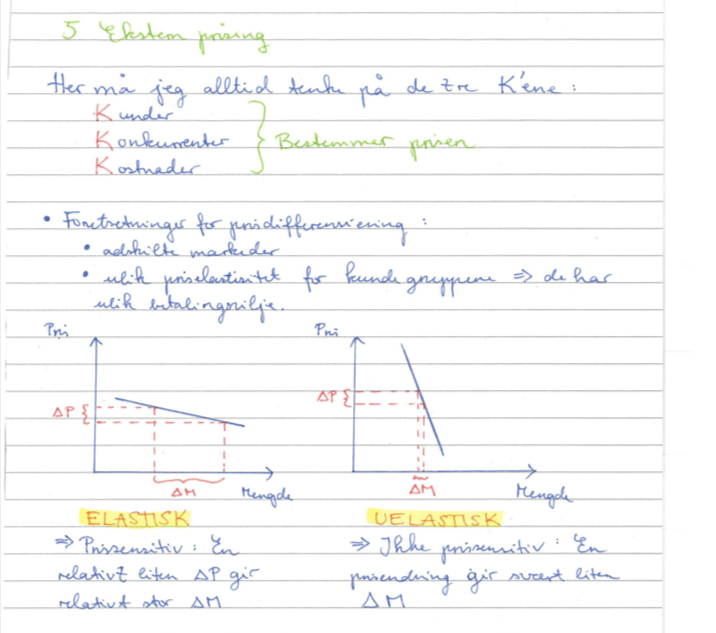 5 Ekstern prising
Her må jeg alltid tenke på de tre K'ene :
Kunder
Konkurrenter } Bestemmer prisen
Kostnader
• Forutsetninger for prisdifferensiering :
• adskilte markeder
• ulik priselastisitet for kundegruppene => de har
ulik betalingsvilje.
Pris
Pris
ΔP {
ΔP {
ΔM
Mengde
ΔM
Mengde
ELASTISK
UELASTISK
=> Prissensitiv : En
relativt liten ΔP gir
relativt stor ΔM
=> Ikke prissensitiv : En
prisendring gir svært liten
ΔM